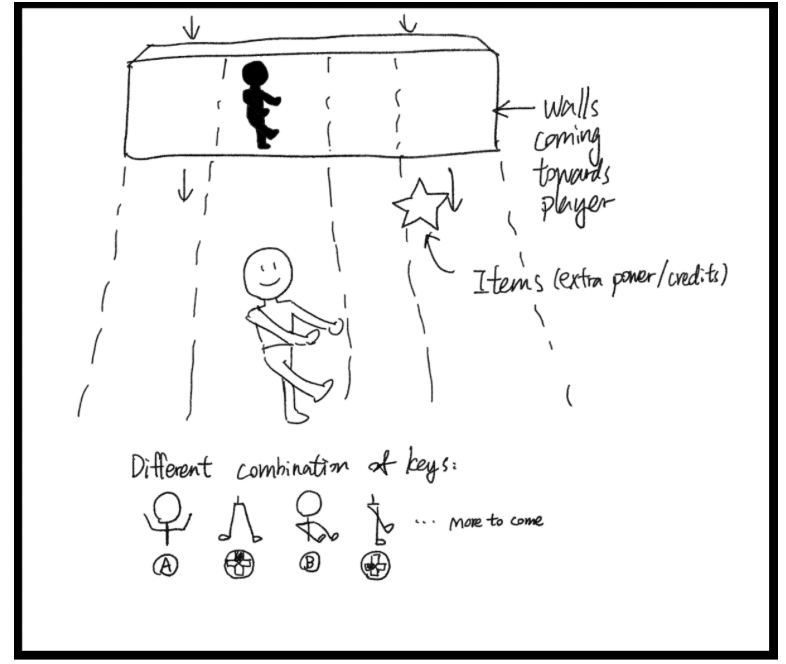 Walls
coming
towards
player
Items (extra power/credits)
Different combination of keys:
... more to come
A
B